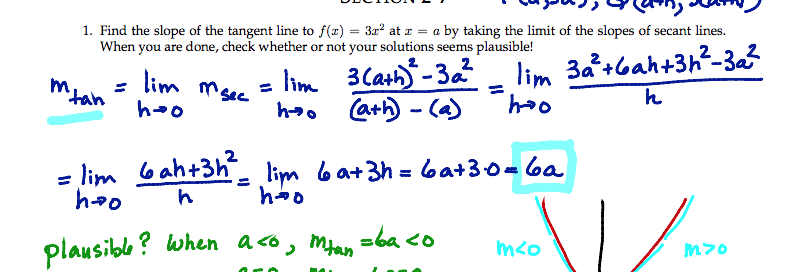 1. Find the slope of the tangent line to f(x) = 3x² at x = a by taking the limit of the slopes of secant lines.
When you are done, check whether or not your solutions seems plausible!
m_tan = lim_{h→0} m_sec = lim_{h→0} (3(a+h)² - 3a²)/((a+h) - (a)) = lim_{h→0} (3a²+6ah+3h²-3a²)/h
= lim_{h→0} (6ah+3h²)/h = lim_{h→0} 6a+3h = 6a+3·0 = 6a
plausible? When a<0, m_tan = 6a <0
m<0 m>0